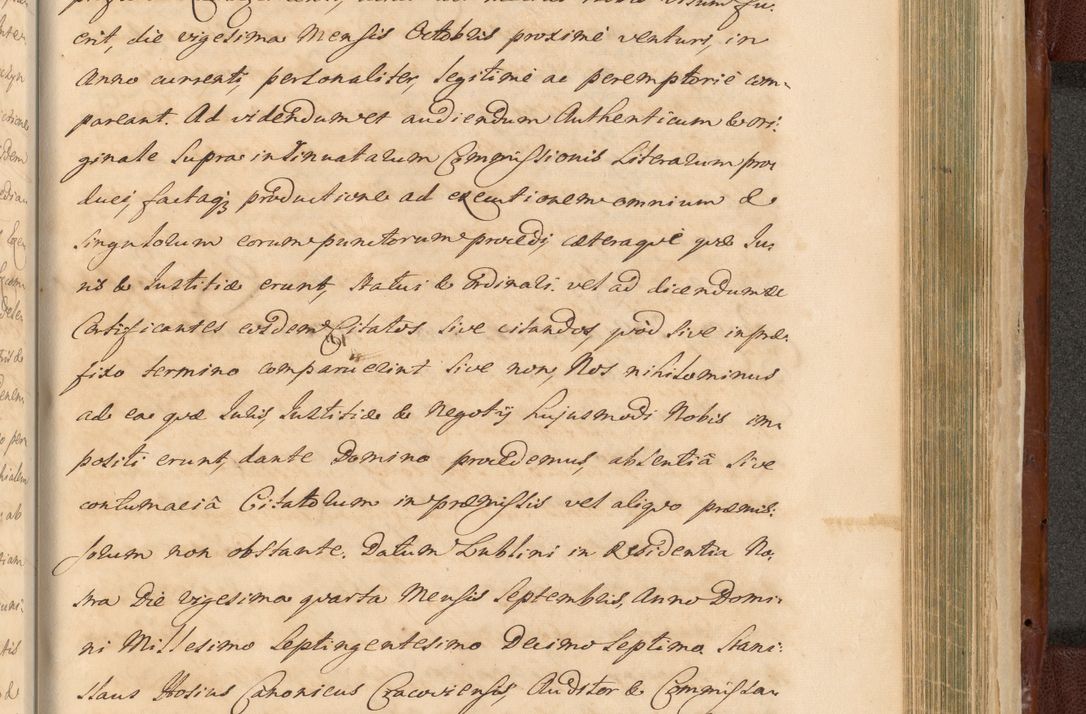 erit, die vigesima Mensis Octobris proximè venturi, in
Anno currenti, personaliter, legitimè ac peremptoriè com-
pareant. Ad videndum et audiendum Authenticum & ori-
ginale supra insinuatarum Commissionis Literarum pro-
duci, factaq; productione ad executionem omnium &
singulorum eorum punctorum procedi, cæteraquè quæ Ju-
ris & Justitiæ erunt, statui & ordinari. vel ad dicendum &c
Certificantes eosdem Citatos sive citandos, quod sive in præ-
fixo termino comparuerint sive non, Nos nihilominus
ad ea quæ Juris, Justitiæ & Negotij hujusmodi Nobis im-
positi erunt, dante Domino procedemus, absentiâ sive
contumaciâ Citatorum in præmissis vel aliquo præmis-
sorum non obstante. Datum Lublini in Residentia No-
stra Die vigesima quarta Mensis Septembris, Anno Domi-
ni Millesimo Septingentesimo Decimo Septimo Stani-
slaus Hosius Canonicus Cracoviensis, Auditor & Commissa-